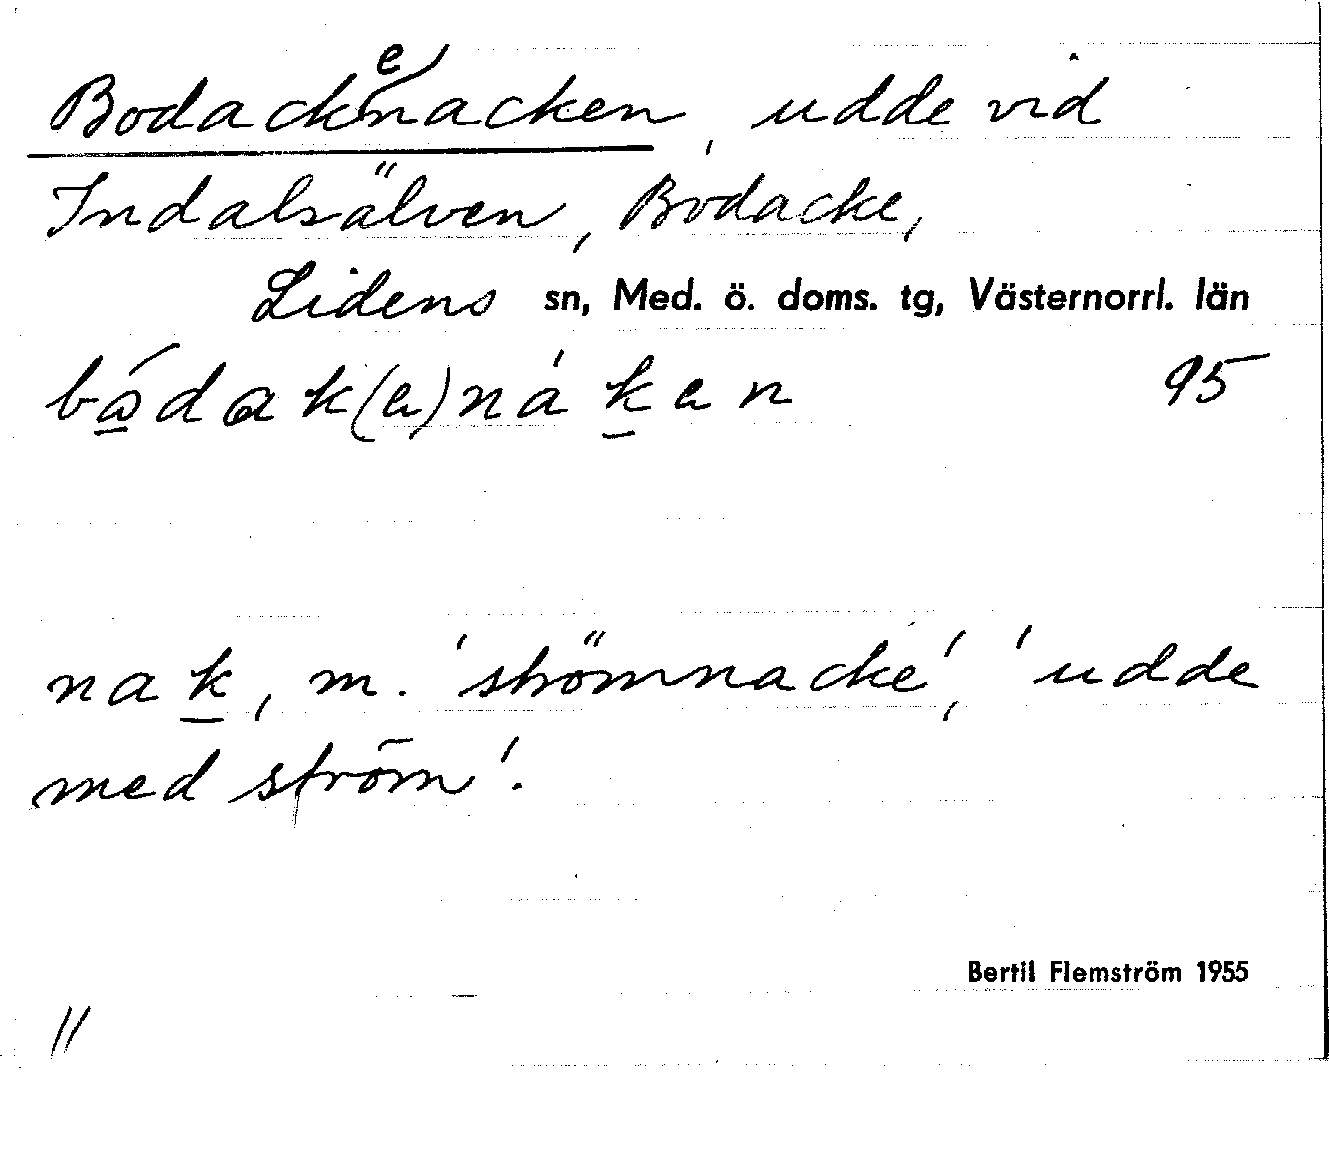 Bodackenacken, udde vid
Indalsälven, Bodacke,
Lidens sn, Med. ö. doms. tg, Västernorrl. län
bådak(a)nákan 95
nak, m. 'strömnacke', 'udde
med ström'.
Bertil Flemström 1955
11